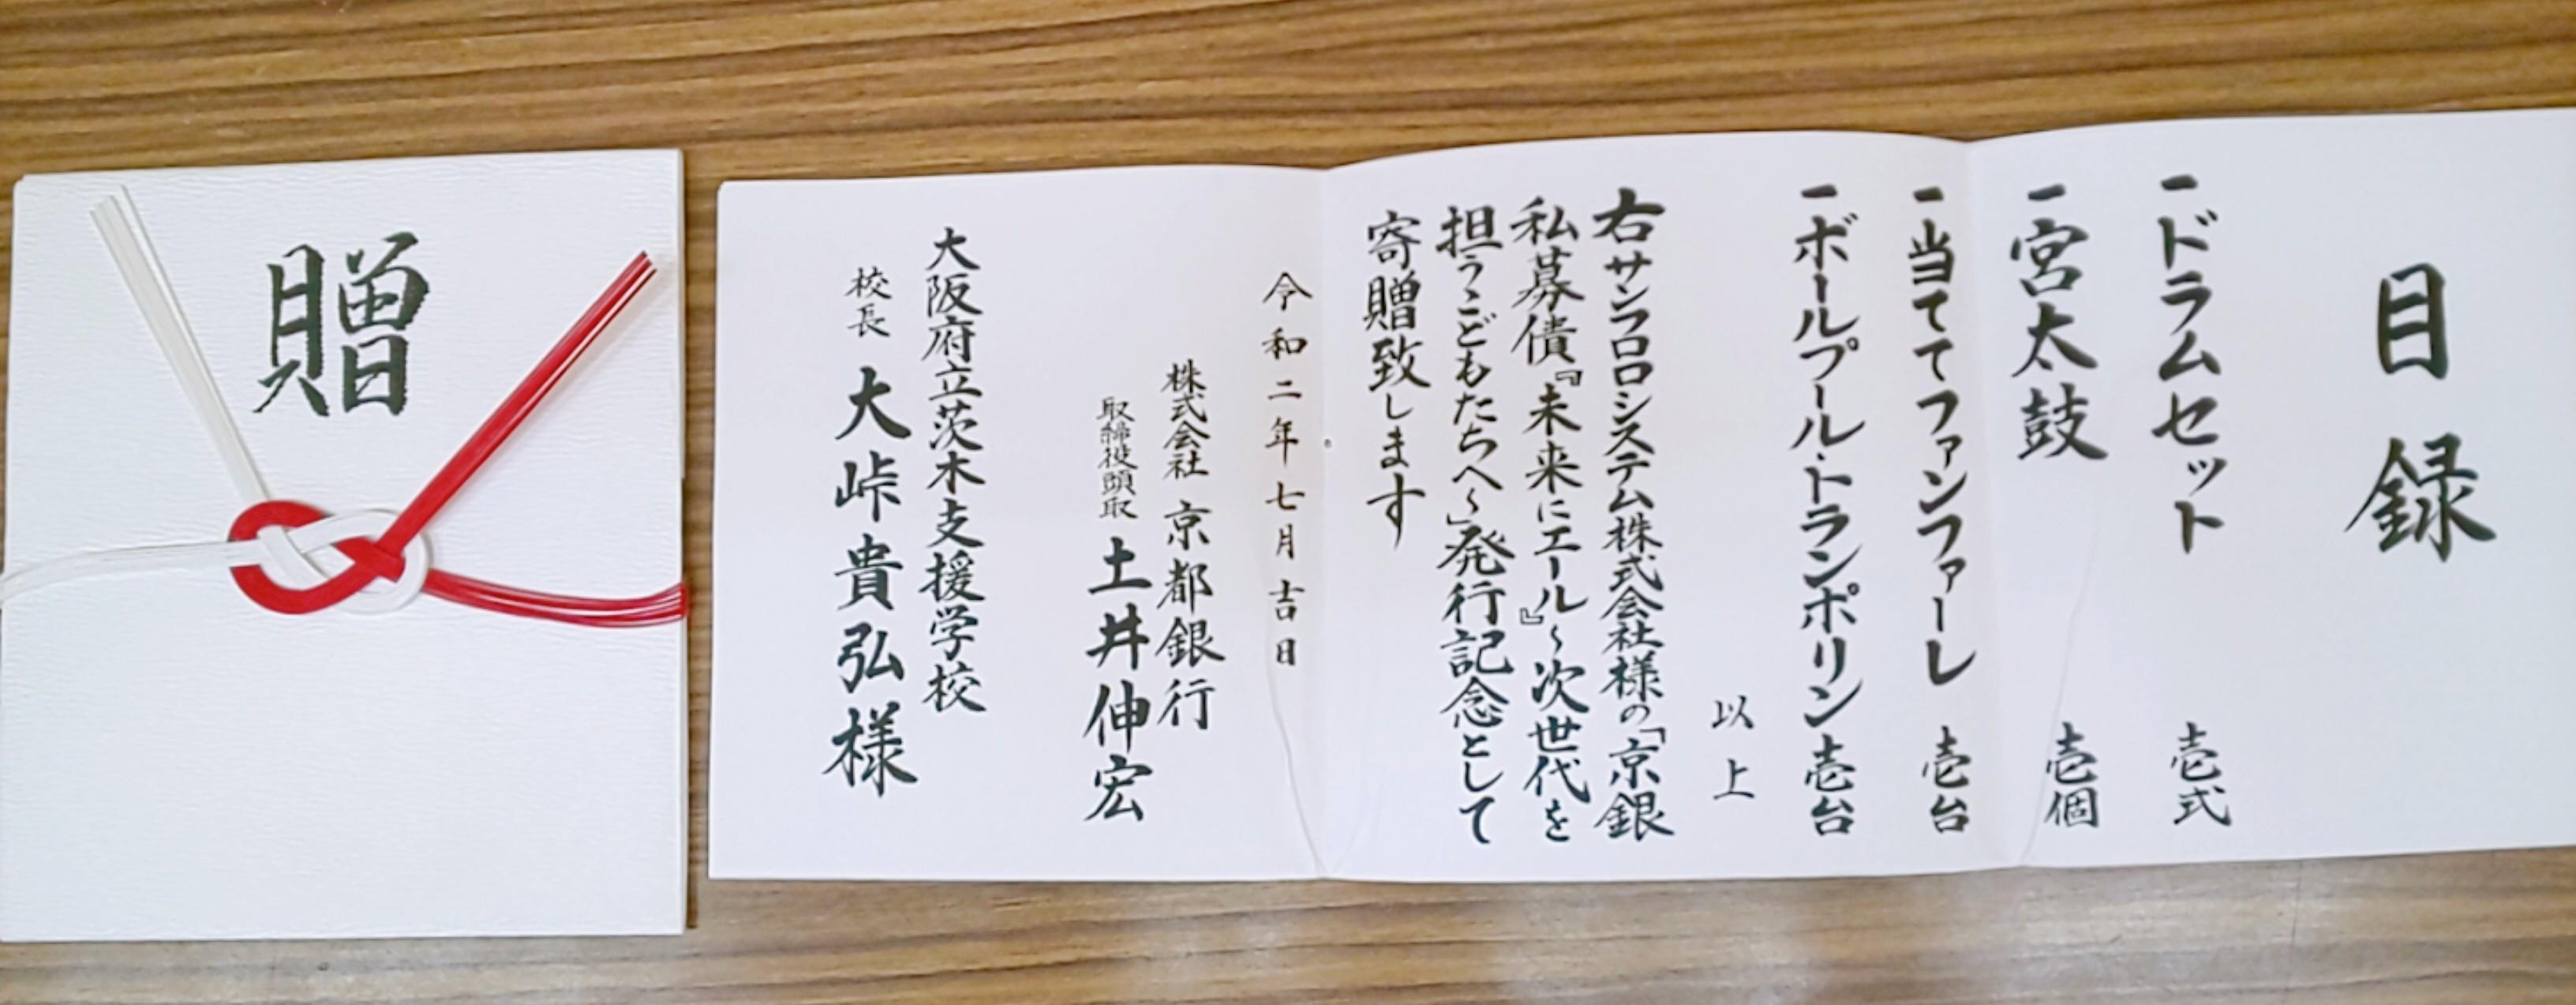 目録
一ドラムセット 壱式
一宮太鼓 壱個
一当ててファンファーレ 壱台
一ボールプール・トランポリン 壱台
以上
右サンフロロシステム株式会社様の「京銀
私募債『未来にエール』~次世代を
担うこどもたちへ~」発行記念として
寄贈致します
令和二年七月吉日
株式会社 京都銀行
取締役頭取 土井伸宏
大阪府立茨木支援学校
校長 大峠貴弘様
贈